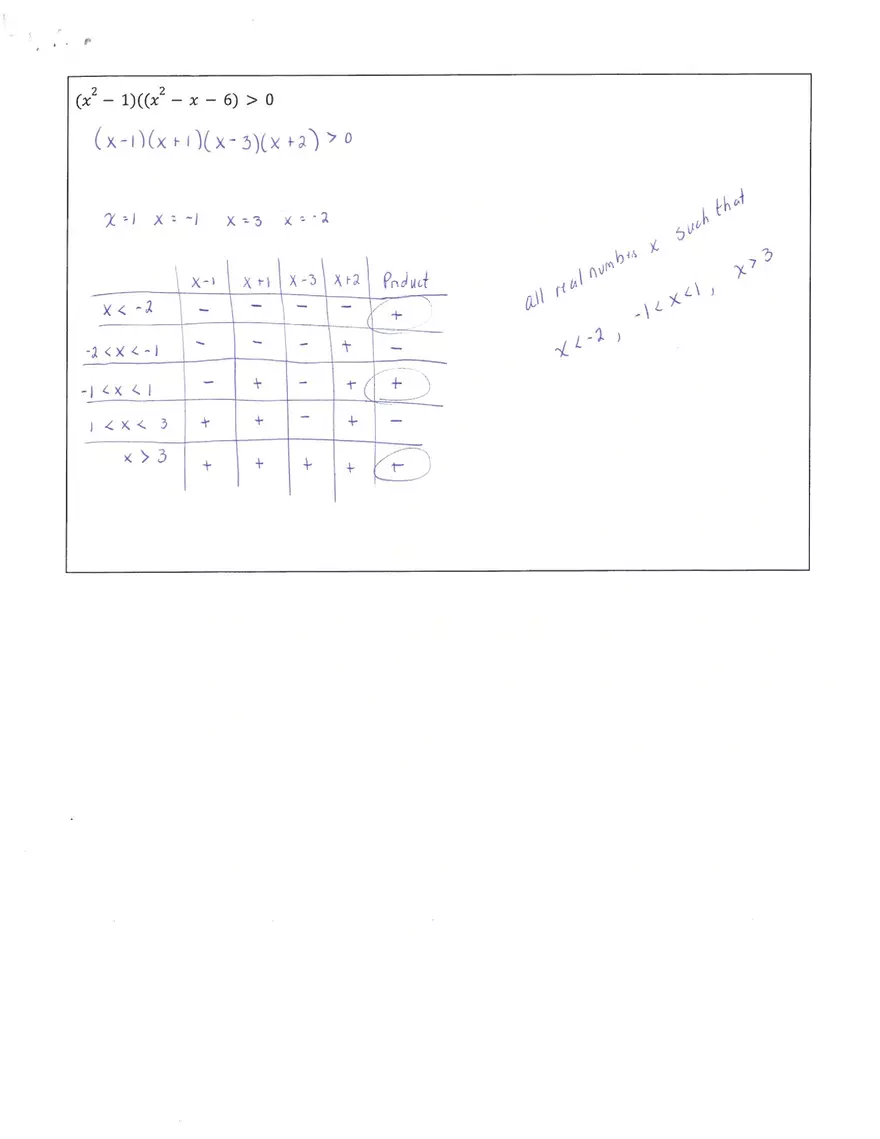 (x² − 1)((x² − x − 6) > 0
(x-1)(x+1)(x-3)(x+2) > 0
x=1 x=-1 x=3 x=-2
x-1 x+1 x-3 x+2 Product
x < -2 - - - - +
-2 < x < -1 - - - + -
-1 < x < 1 - + - + +
1 < x < 3 + + - + -
x > 3 + + + + +
all real numbers x such that
x < -2, -1 < x < 1, x > 3